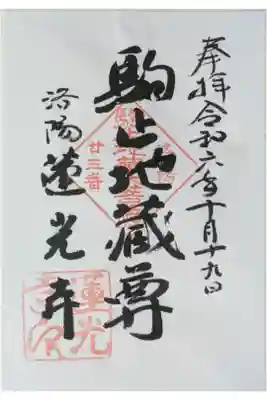 奉拝 令和六年十月十九日
駒止地蔵尊
洛陽 蓮光寺
廿三番
蓮光